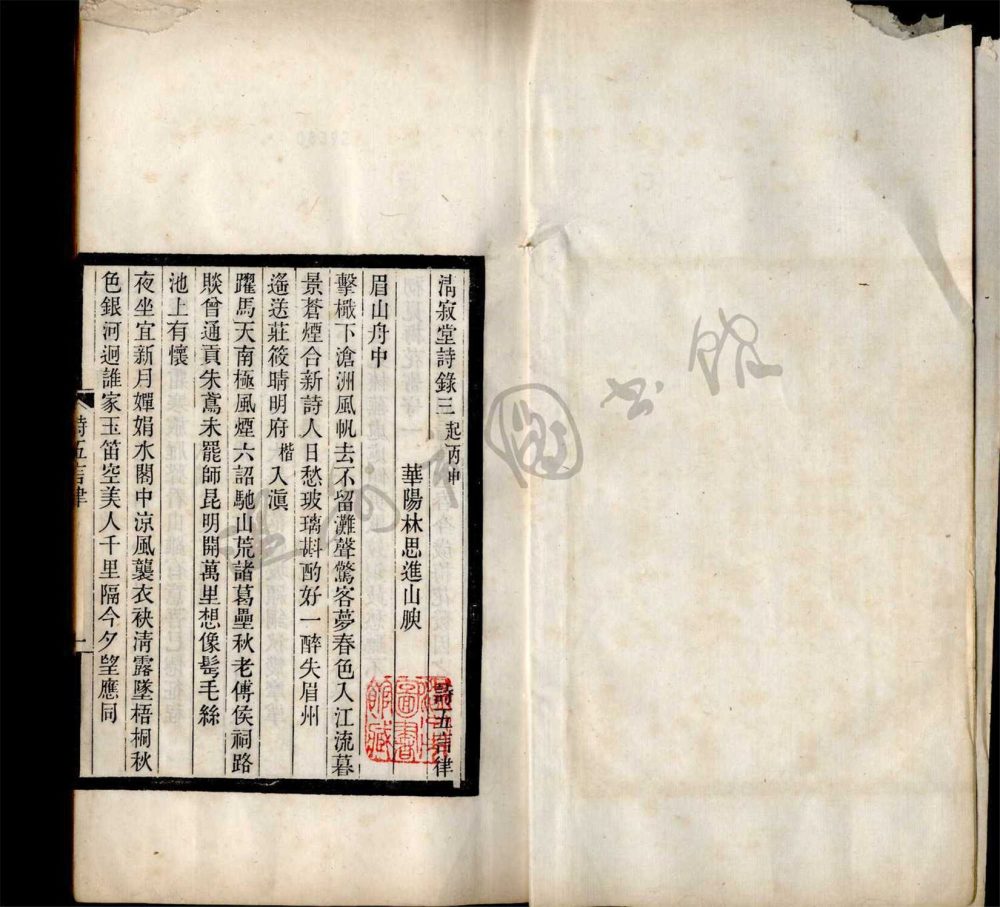 清寂堂詩錄三 起丙申 詩五言律
華陽林思進山腴
眉山舟中
擊檝下滄洲風帆去不留灘聲驚客夢春色入江流暮
景蒼煙合新詩人日愁玻璃斟酌好一醉失眉州
遙送莊筱晴明府 楷 入滇
躍馬天南極風煙六詔馳山荒諸葛壘秋老傅侯祠路
賧曾通貢朱鳶未罷師昆明開萬里想像髩毛絲
池上有懷
夜坐宜新月嬋娟水閣中涼風襲衣袂淸露墜梧桐秋
色銀河迥誰家玉笛空美人千里隔今夕望應同
詩五言律
一
圖書
館藏